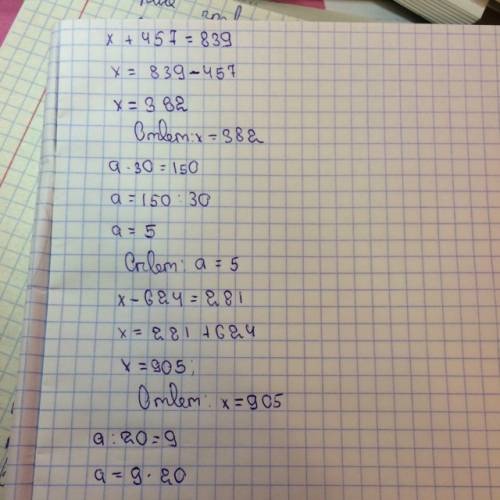 x + 457 = 839
x = 839 - 457
x = 382
Ответ: x = 382
a · 30 = 150
a = 150 : 30
a = 5
Ответ: a = 5
x - 624 = 281
x = 281 + 624
x = 905;
Ответ: x = 905
a : 20 = 9
a = 9 · 20